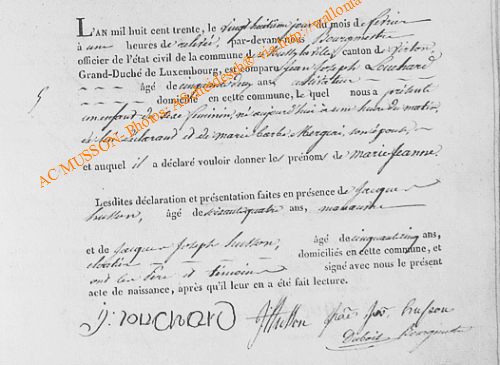 L'AN mil huit cent trente, le vingt huitième jour du mois de février
à une heures de relevée, par-devant nous Bourgmestre
officier de l'état civil de la commune de canton de Virton,
Grand-Duché de Luxembourg, est comparu Jean Joseph Louchard
âgé de ans, cultivateur
domicilié en cette commune, le quel nous a présenté
un enfant de sexe féminin, né aujourd'hui à une heure du matin,
et de marie barbe son épouse,
et auquel il a déclaré vouloir donner les prénoms de marie Jeanne.
Lesdites déclaration et présentation faites en présence de Jacque
husson, âgé de soixante quatre ans, manœuvre
et de Jacque Joseph husson, âgé de cinquante cinq ans,
domiciliés en cette commune, et
ont les père et témoins signé avec nous le présent
acte de naissance, après qu'il leur en a été fait lecture.
j: Louchard JJhusson husson
Dubois Bourgmestre
AC MUSSON- Photos